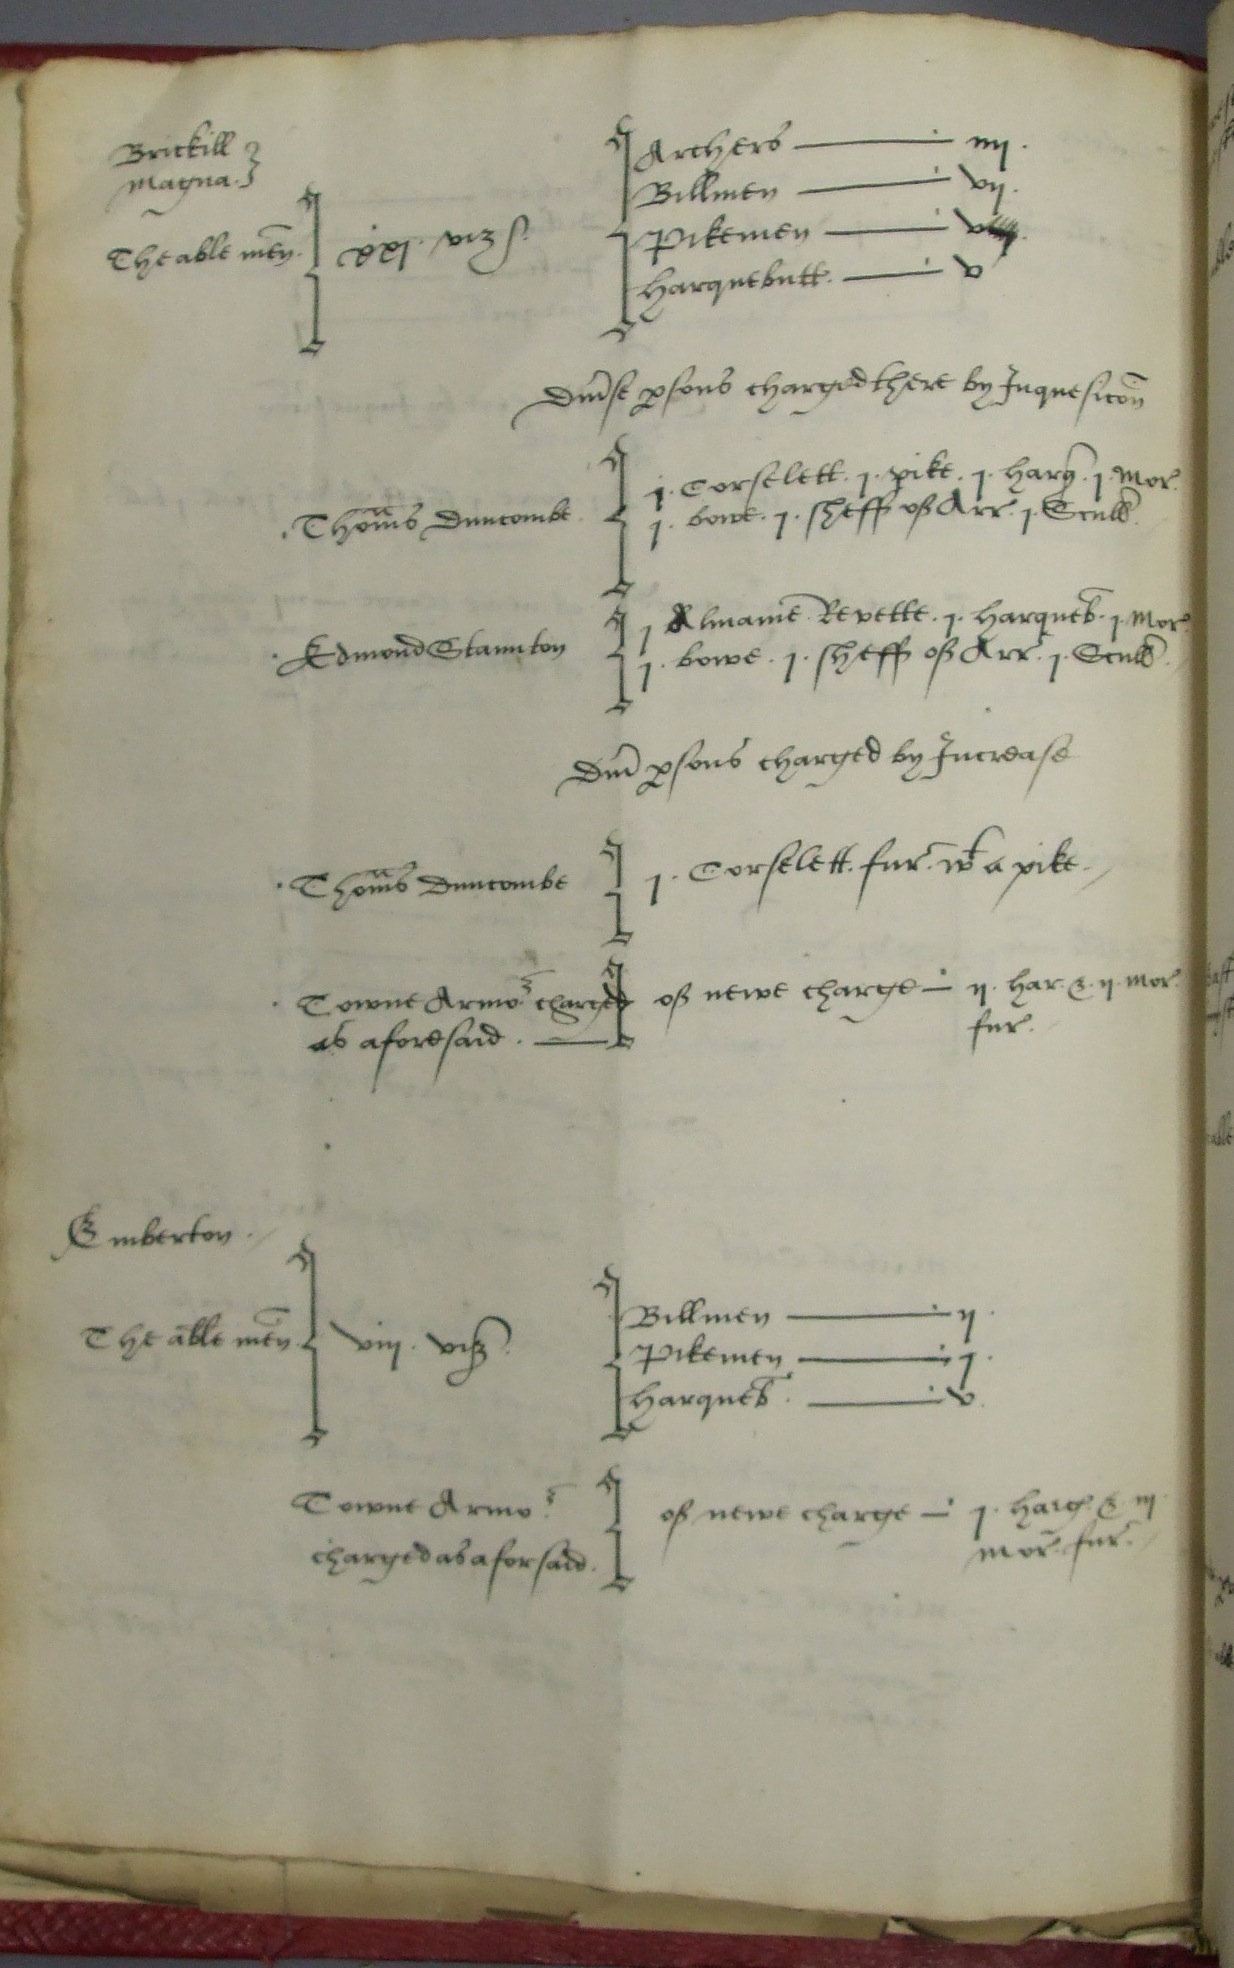 Brickill
magna.
The able men. xxi. viz
Archers — iiij.
Billmen — vij.
Pikemen — v
Harquebutt. — v
Diu'se p'sons charged there by Inquesicon
. Thom's Duncombe.
j. Corselett. j. pike. j. harq. j. Mor.
j. bowe. j. sheff of Arr. j. Scull.
. Edmond Staunton
j Almaine Revette. j. harqueb. j. Mor.
j. bowe. j. sheff of Arr. j. Scull.
Diu' p'sons charged by Increase
. Thom's Duncombe
j. Corselett. fur. wt a pike.
. Towne Armor charged
as aforesaid. —
of newe charge — ij. har. & ij. mor.
fur.
Emberton.
The able men. viij. viz.
Billmen — ij.
Pikemen — j.
Harqueb. — v.
Towne Armor
charged as aforsaid.
of newe charge — j. harq. & iij
mor. fur.